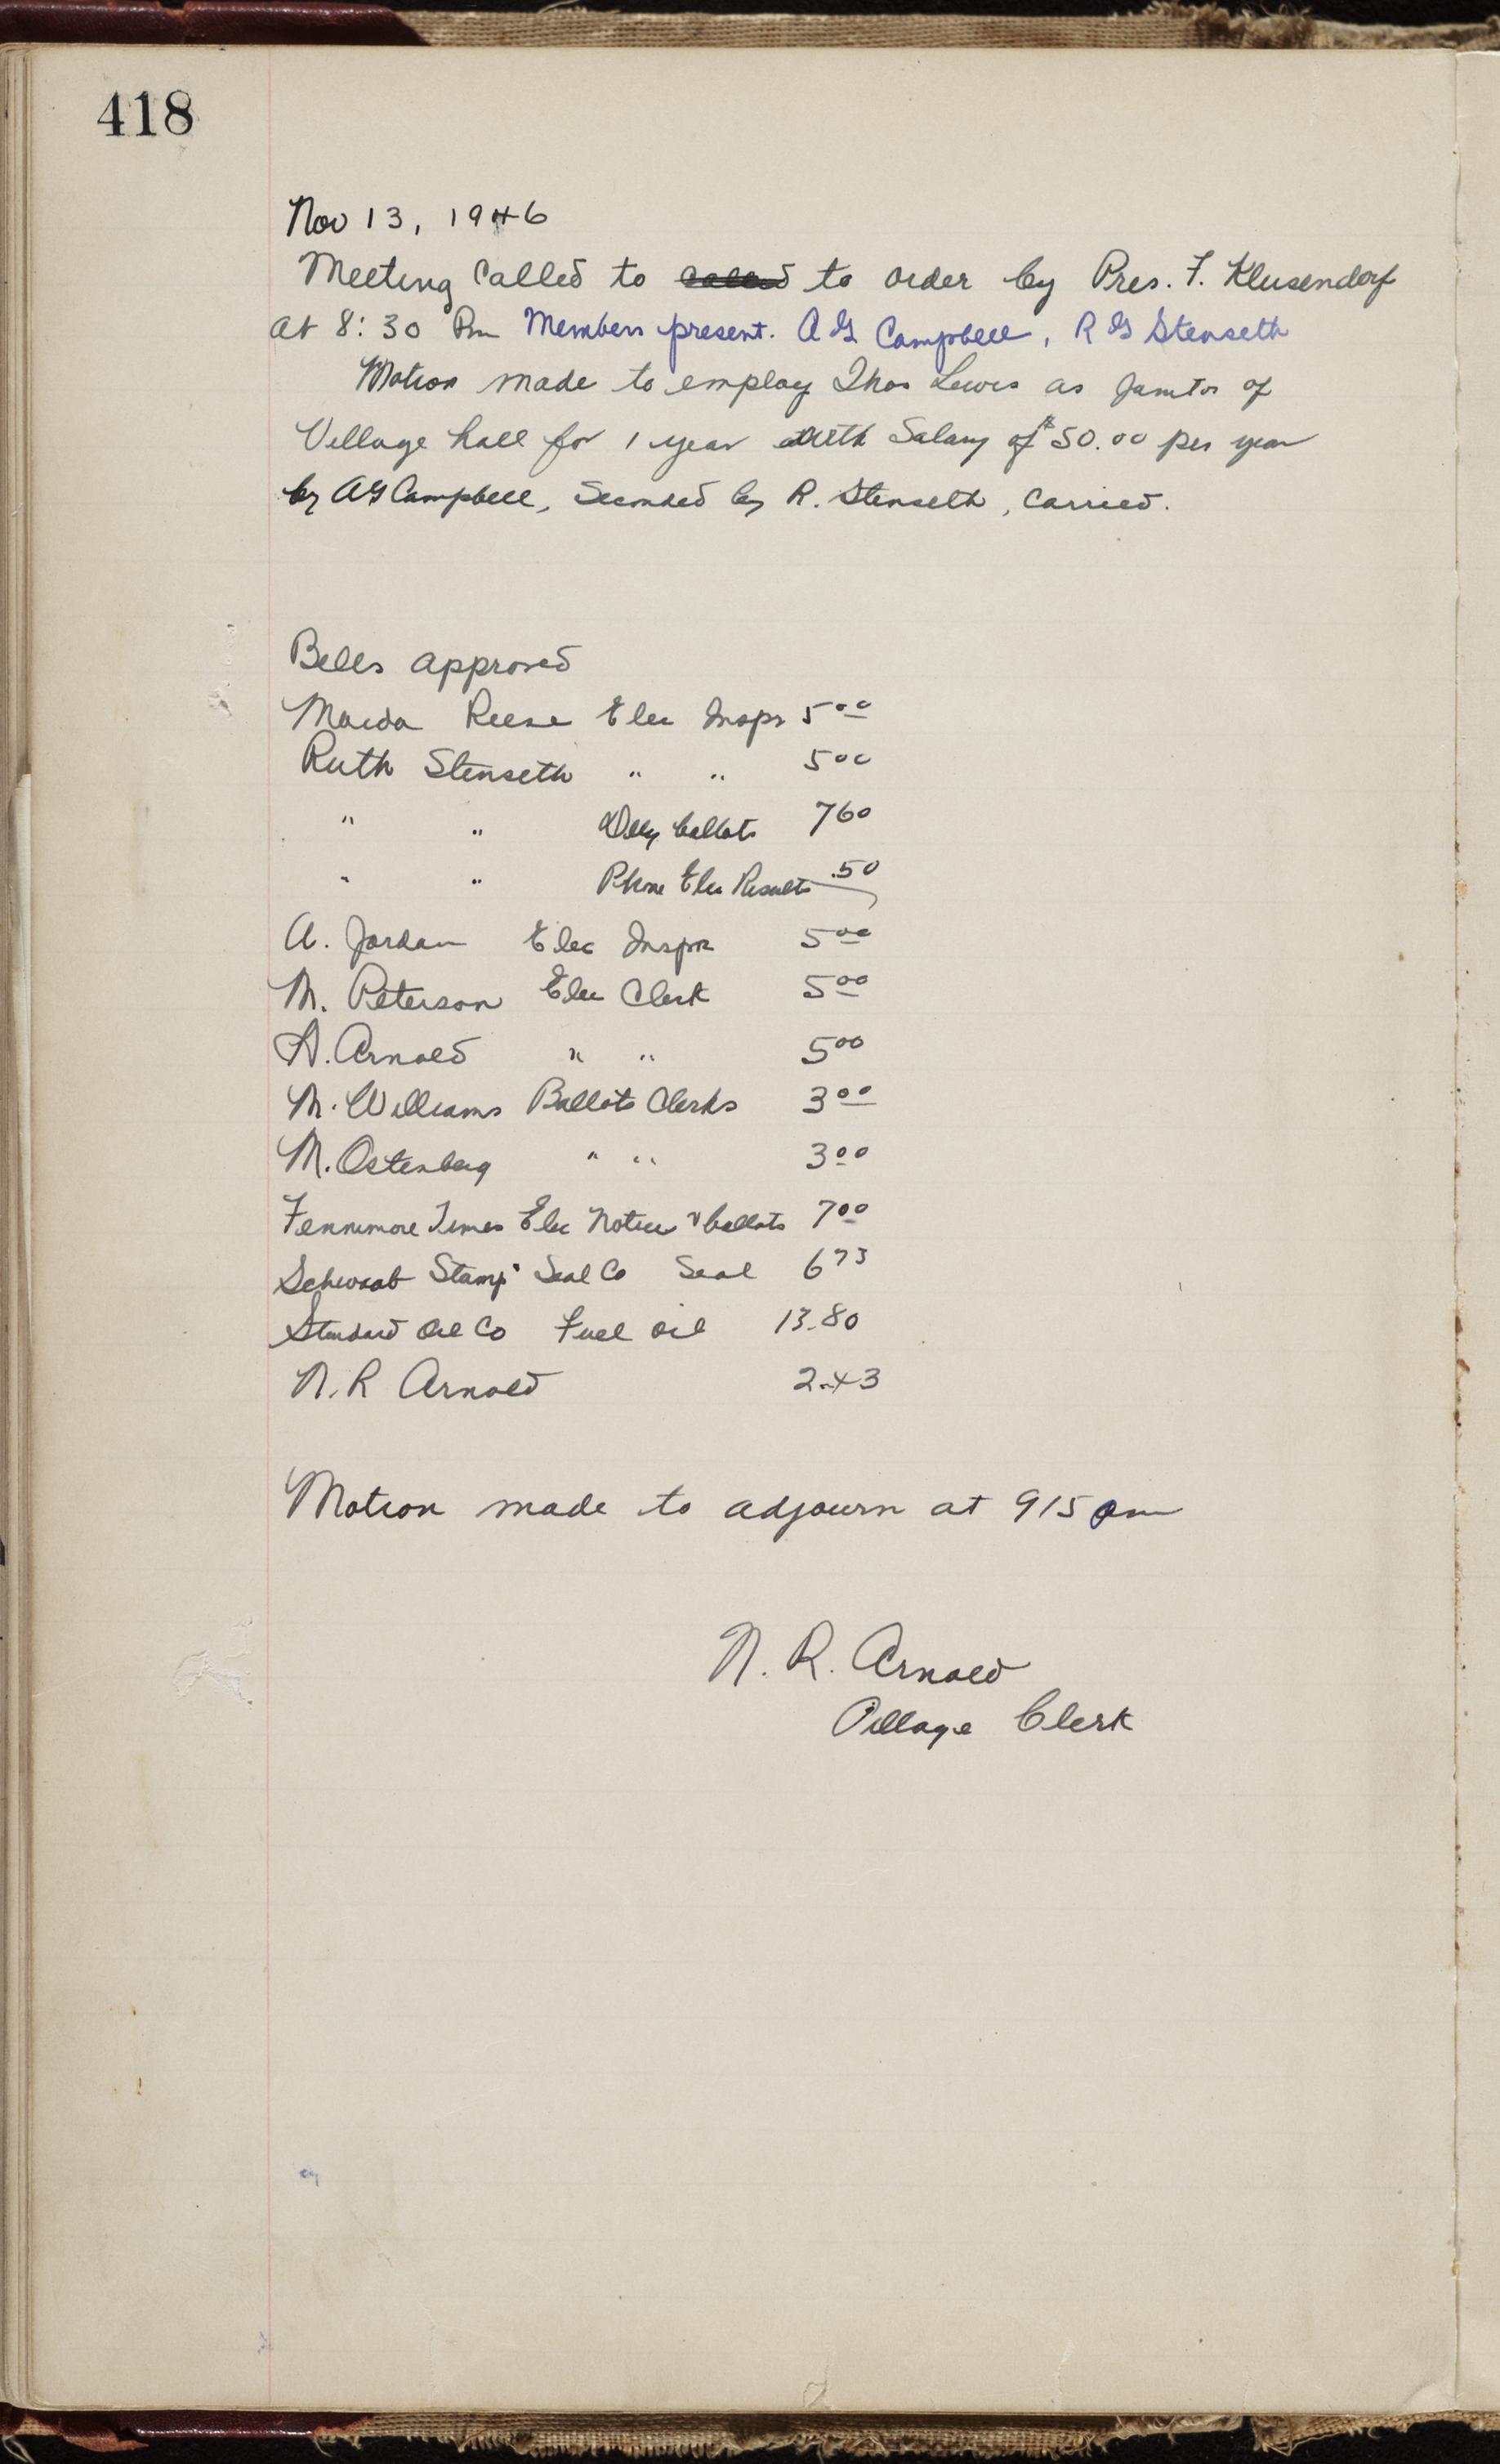 418
Nov 13, 1946
Meeting Called to called to order by Pres. F. Klusendorf
at 8:30 Pm Members present. A G Campbell, R G Stenseth
Motion made to employ Thos Lewis as Janitor of
Village hall for 1 year with Salary of $50.00 per year
by A G Campbell, Seconded by R. Stenseth, Carried.
Bills approved
Maida Reese Elec Inspr 5 00
Ruth Stenseth " " 5 00
" " Dely ballots 7 60
" " Phone Elec Results .50
A. Jordan Elec Inspr 5 00
M. Peterson Elec Clerk 5 00
A. Arnold " " 5 00
M. Williams Ballots Clerks 3 00
M. Ostenberg " " 3 00
Fennimore Times Elec Notices & ballots 7 00
Schwaab Stamp & Seal Co Seal 6 73
Standard Oil Co Fuel oil 13.80
N. R Arnold 2.43
Motion made to adjourn at 9 15 pm
N. R. Arnold
Village Clerk